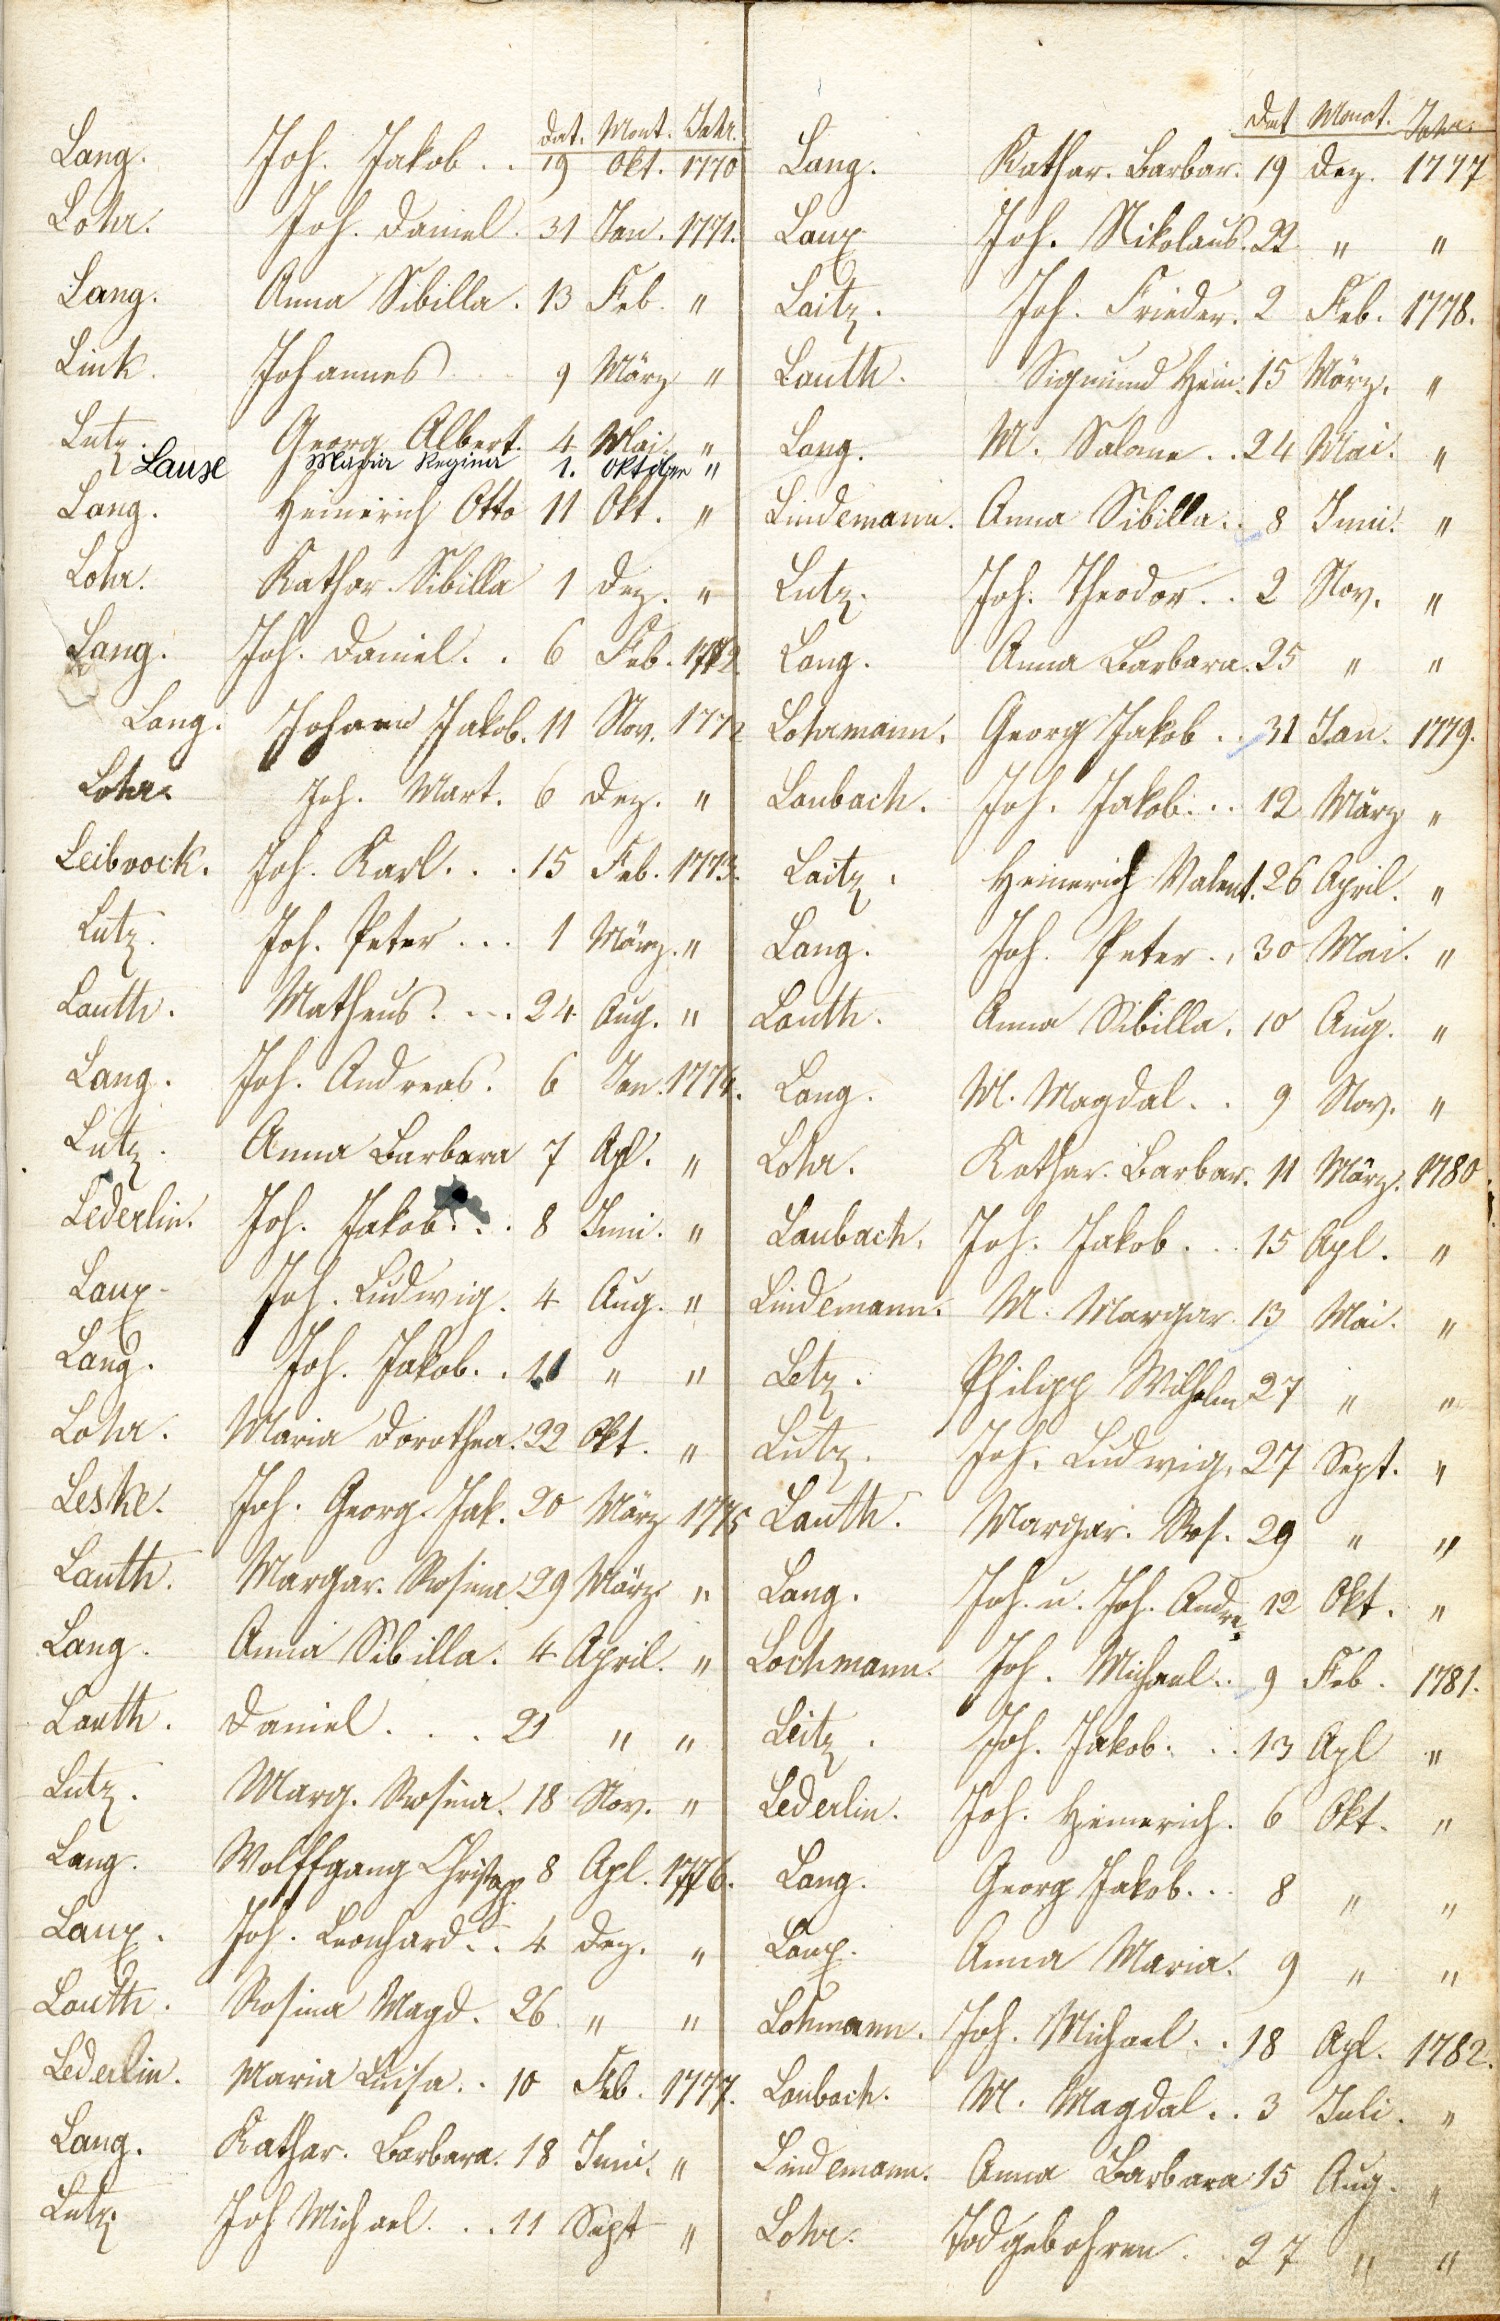 dat. Mont. Jahr.
Lang. Joh. Jakob . . 19 Okt. 1770
Lohr. Joh. Daniel. 31 Jan. 1771.
Lang. Anna Sibilla. 13 Feb. "
Link. Johannes 9 März "
Lutz. Georg Albert. 4 Mai. "
Lause Maria Regina 1. Oktober "
Lang. Heinrich Otto 11 Okt. "
Lohr. Kathar. Sibilla 1 Dez. "
Lang. Joh. Daniel. . 6 Feb. 1772.
Lang. Johann Jakob. 11 Nov. 1772
Lohr. Joh. Mart. 6 Dez. "
Leibrock. Joh. Karl. . . 15 Feb. 1773.
Lutz. Joh. Peter . . . 1 März. "
Lauth. Matheus. . . . 24 Aug. "
Lang. Joh. Andreas. 6 Jan. 1774.
Lutz. Anna Barbara 7 Apl. "
Lederlin. Joh. Jakob. . . 8 Juni. "
Laux. Joh. Ludwig. 4 Aug. "
Lang. Joh. Jakob. . 11 " "
Lohr. Maria Dorothea. 22 Okt. "
Leske. Joh. Georg. Jak. 20 März 1775
Lauth. Margar. Rosina 29 März "
Lang. Anna Sibilla. 4 April. "
Lauth. Daniel. . . 21 " "
Lutz. Marg. Rosina. 18 Nov. "
Lang. Wolffgang Christoph 8 Apl. 1776.
Laux. Joh. Leonhard. . 4 Dez. "
Lauth. Rosina Magd. 26 " "
Lederlin. Maria Luisa. . 10 Feb. 1777.
Lang. Kathar. Barbara. 18 Juni. "
Lutz. Joh Michael. . . 11 Sept "
Dat Monat. Jahr.
Lang. Kathar. Barbar. 19 Dez. 1777
Laux Joh. Nikolaus. 22 " "
Laitz. Joh. Frieder. 2 Feb. 1778.
Lauth. Sigmund Hein. 15 März. "
Lang. M. Salome . . 24 Mai. "
Lindemann. Anna Sibilla. . 8 Juni. "
Lutz. Joh. Theodor. . 2 Nov. "
Lang. Anna Barbara. 25 " "
Lohrmann. Georg Jakob . . 31 Jan. 1779.
Laubach. Joh. Jakob. . . 12 März "
Laitz. Heinerich Valent. 26 April. "
Lang. Joh. Peter. . 30 Mai. "
Lauth. Anna Sibilla. 10 Aug. "
Lang. M. Magdal. . 9 Nov. "
Lohr. Kathar. Barbar. 11 März. 1780
Laubach. Joh. Jakob. . . 15 Apl. "
Lindemann. M. Margar. 13 Mai. "
Letz. Philipp Wilhelm 27 " "
Lutz. Joh. Ludwig. 27 Sept. "
Lauth. Margar. Ros. 29 " "
Lang. Joh. u. Joh. Andre. 12 Okt. "
Lochmann. Joh. Michael. . 9 Feb. 1781.
Leitz. Joh. Jakob. . . 13 Apl "
Lederlin. Joh. Heinerich. 6 Okt. "
Lang. Georg Jakob. . . 8 " "
Laux. Anna Maria. 9 " "
Lohmann. Joh. Michael. . 18 Apl. 1782.
Laubach. M. Magdal. . 3 Juli. "
Lindemann. Anna Barbara 15 Aug. "
Lohr. Todgebohren. . 27 " "